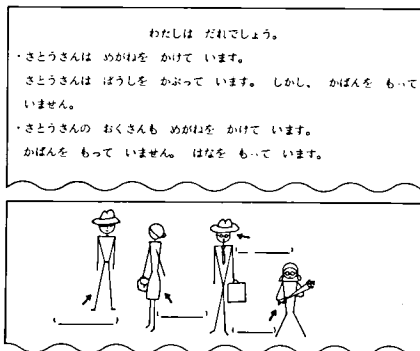 わたしは だれでしょう。
・さとうさんは めがねを かけて います。
さとうさんは ぼうしを かぶって います。 しかし、 かばんを もって
いません。
・さとうさんの おくさんも めがねを かけて います。
かばんを もって いません。 はなを もって います。